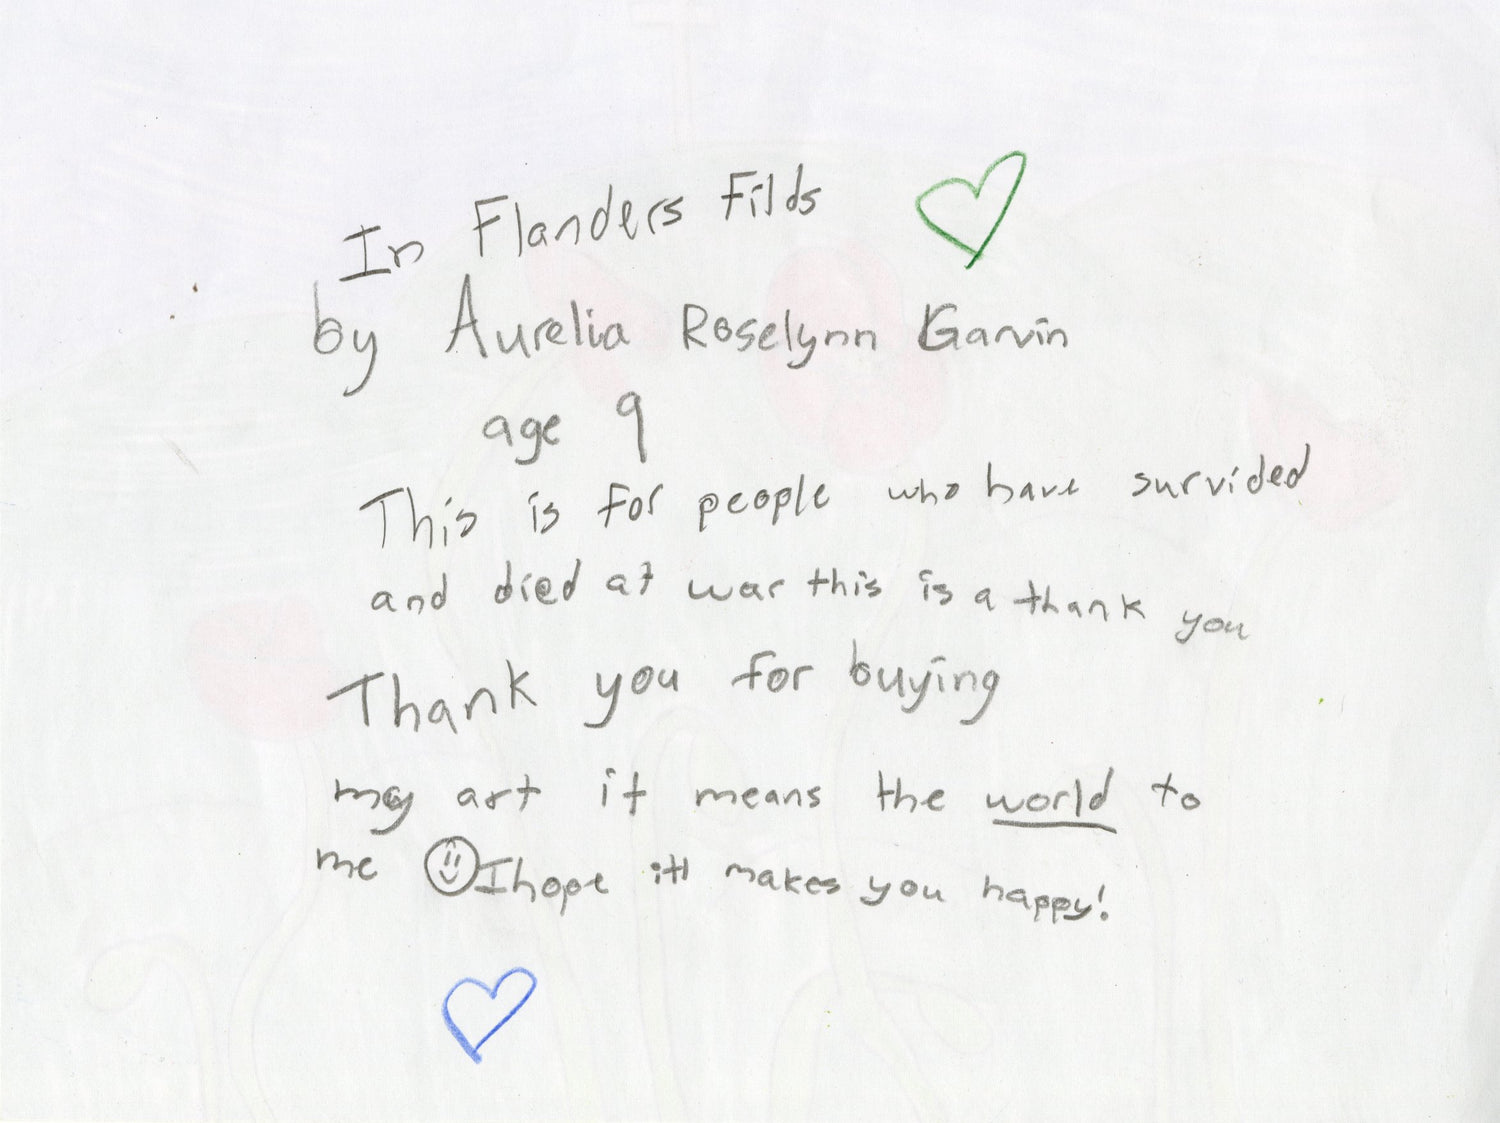 In Flanders Filds
by Aurelia Roselynn Garvin
age 9
This is for people who have survided
and died at war this is a thank you
Thank you for buying
my art it means the world to
me I hope itl makes you happy!